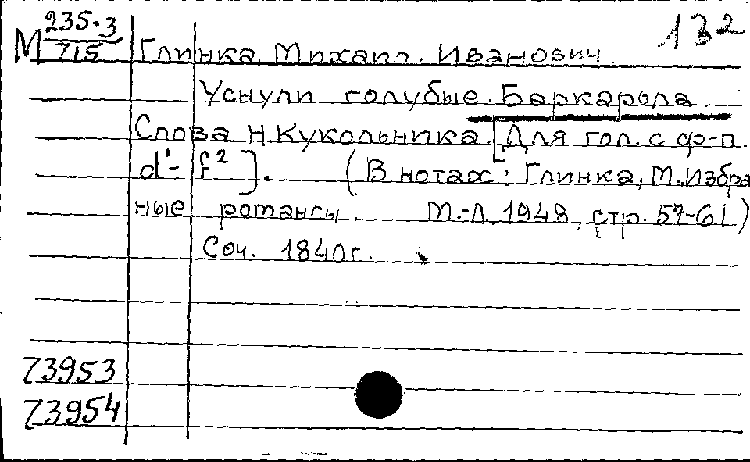 132
М 235.3/715 Глинка, Михаил Иванович
Уснули голубые. Баркарола.
Слова Н. Кукольника. [Для гол. с ф-п.
d¹- f²]. (В нотах: Глинка, М. Избра
ные романсы. М.-Л. 1948, стр. 57-61)
Соч. 1840г.
73953
73954